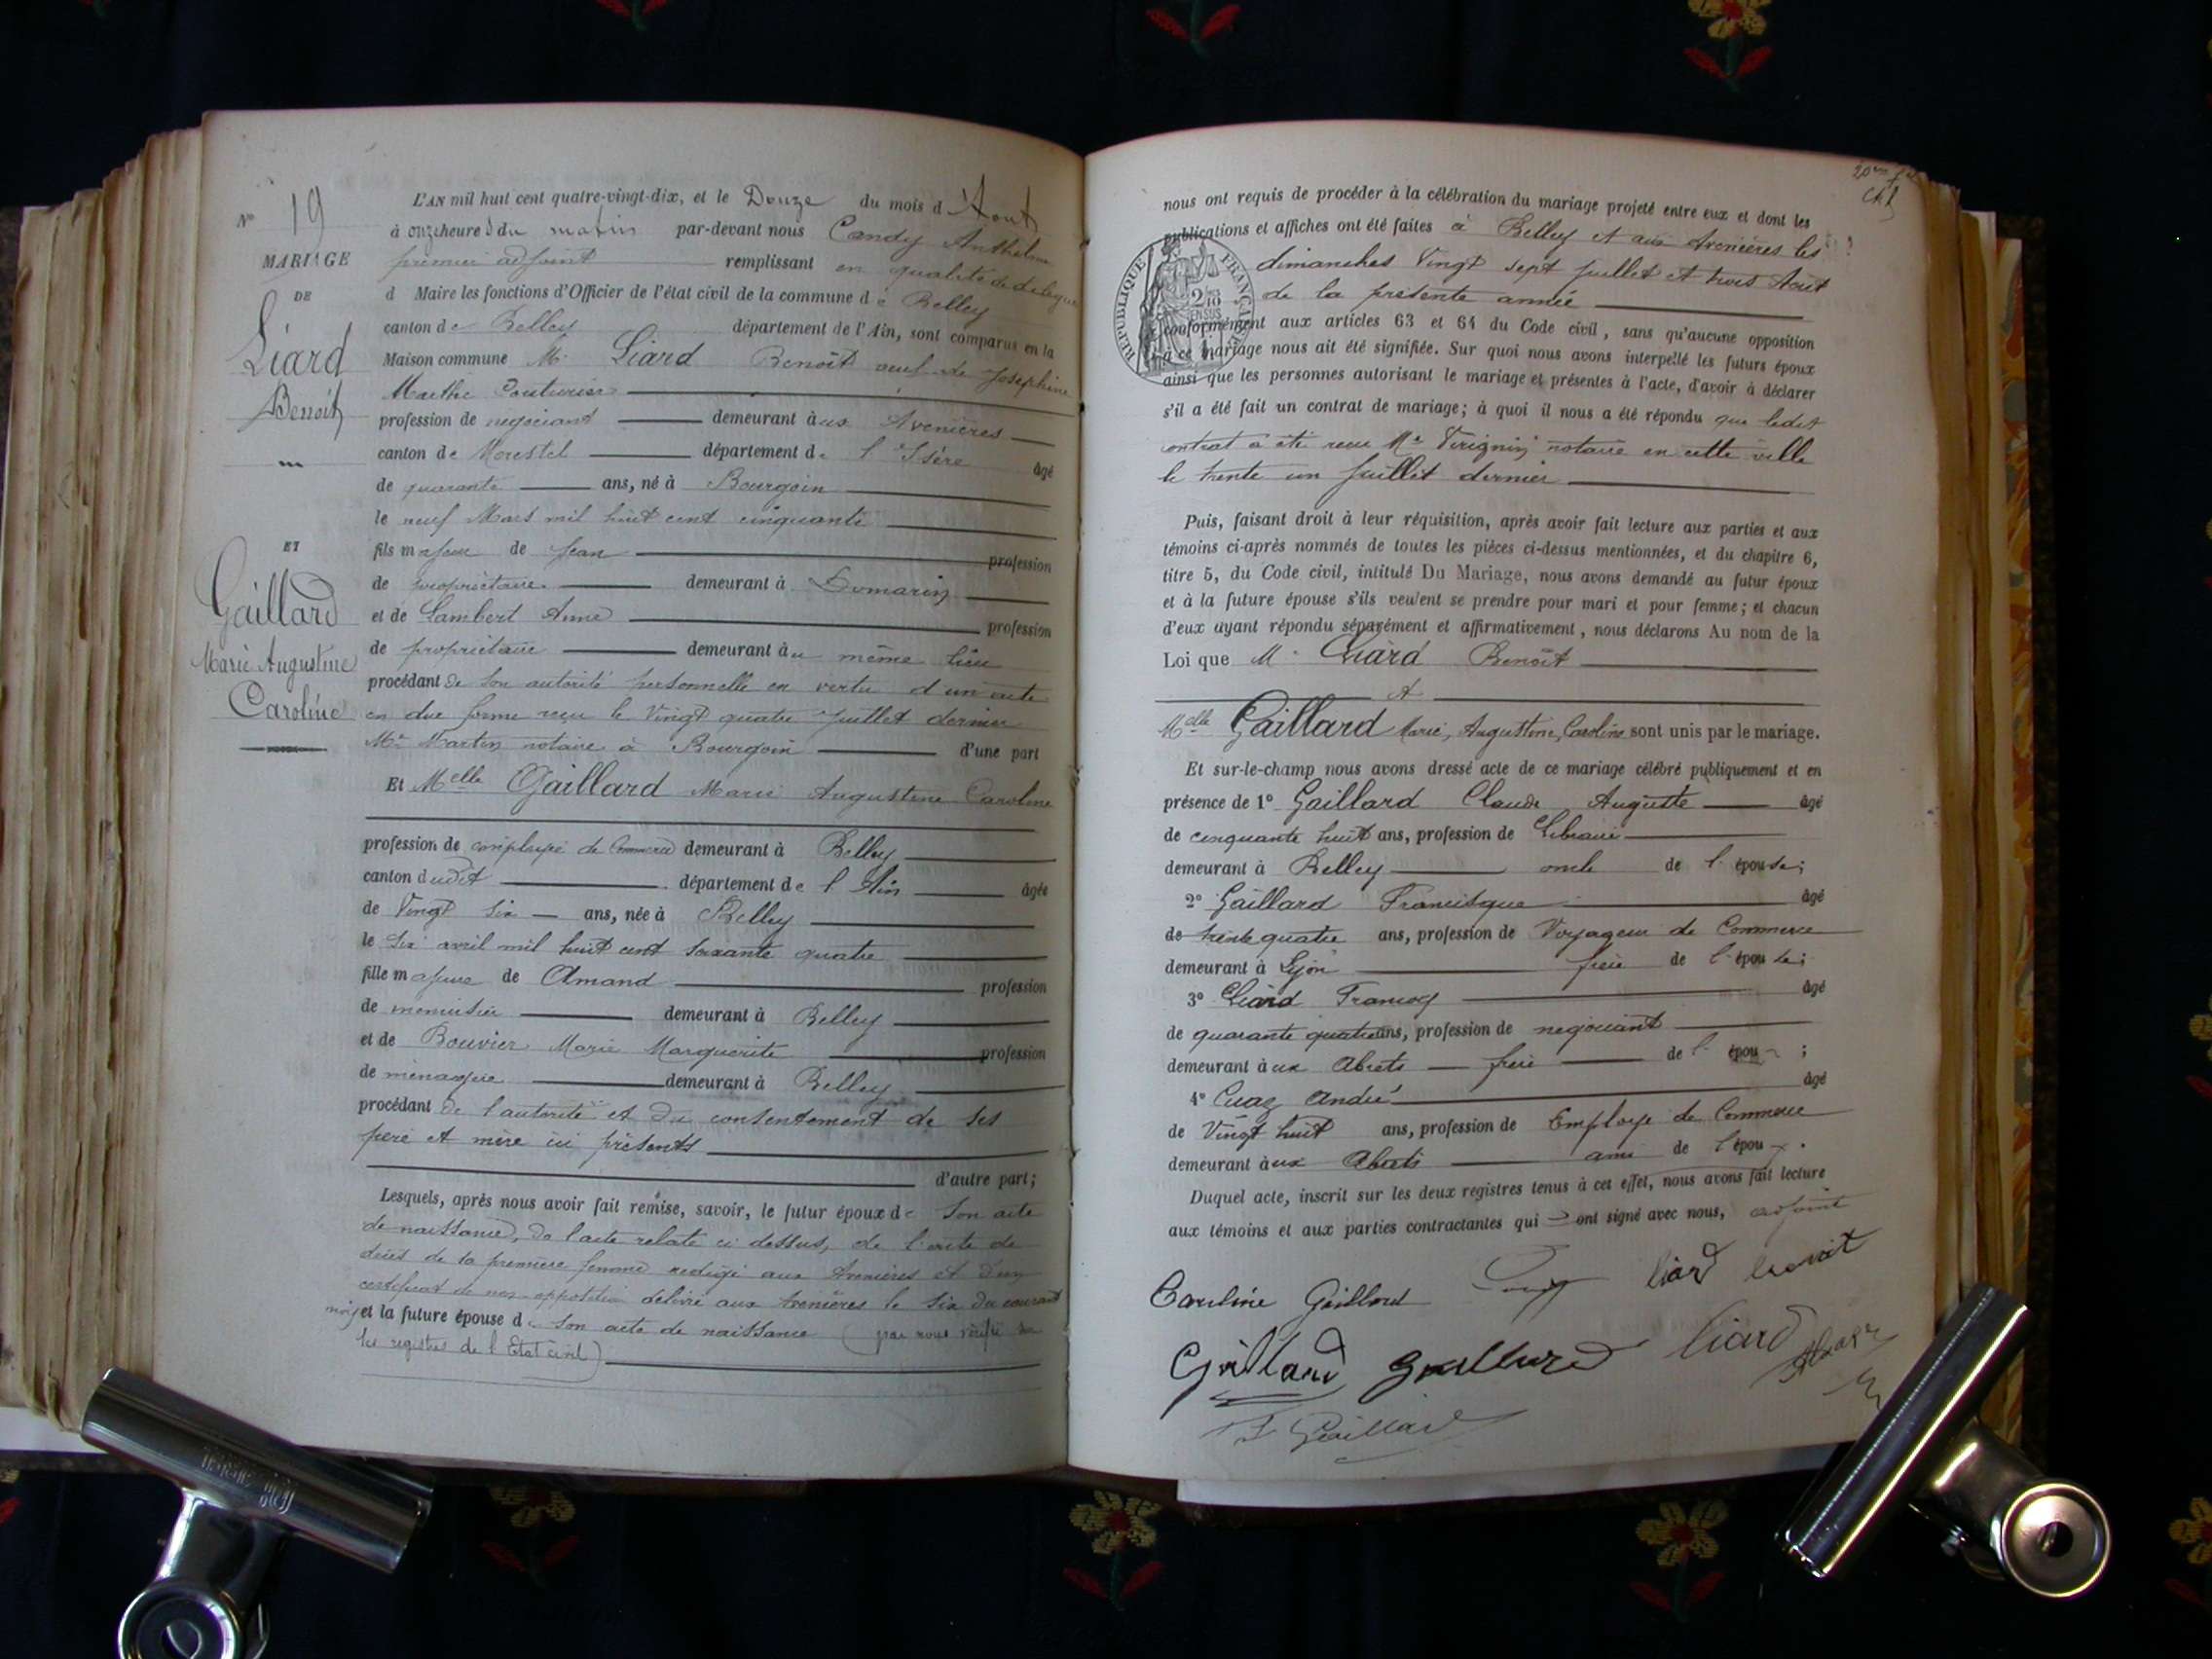 N° 19
MARIAGE
DE
Liard
Benoît
ET
Gaillard
Marie Augustine
Caroline
L'AN mil huit cent quatre-vingt-dix, et le Douze du mois d'Aout
à onze heures du matin par-devant nous Candy Anthelme
premier adjoint remplissant en qualité de délégué
d Maire les fonctions d'Officier de l'état civil de la commune de Belley
canton de Belley département de l'Ain, sont comparus en la
Maison commune Mr Liard Benoît veuf de Josephine
Marthe Couturier
profession de negociant demeurant aux Avenières
canton de Morestel département de l'Isère âgé
de quarante ans, né à Bourgoin
le neuf Mars mil huit cent cinquante
fils majeur de Jean profession
de propriétaire demeurant à Domarin
et de Lambert Anne profession
de propriétaire demeurant au même lieu
procédant de son autorité personnelle en vertu d'un acte
en due forme reçu le Vingt quatre Juillet dernier
Me Martin notaire à Bourgoin d'une part
Et Melle Gaillard Marie Augustine Caroline
profession de employée de Commerce demeurant à Belley
canton dudit département de l'Ain âgée
de Vingt six ans, née à Belley
le six avril mil huit cent soixante quatre
fille majeure de Amand profession
de menuisier demeurant à Belley
et de Bouvier Marie Marguerite profession
de ménagère demeurant à Belley
procédant de l'autorité et du consentement de ses
père et mère ici présents
d'autre part;
Lesquels, après nous avoir fait remise, savoir, le futur époux de son acte
de naissance, de l'acte relaté ci dessus, de l'acte de
décès de sa première femme rédigé aux Avenières et d'un
certificat de non opposition délivré aux Avenières le six du courant
mois et la future épouse de son acte de naissance (par nous vérifié sur
les registres de l'Etat civil)
nous ont requis de procéder à la célébration du mariage projeté entre eux et dont les
publications et affiches ont été faites à Belley et aux Avenières les
dimanches Vingt sept Juillet et trois Août
de la présente année
RÉPUBLIQUE FRANÇAISE
conformément aux articles 63 et 64 du Code civil, sans qu'aucune opposition
à ce mariage nous ait été signifiée. Sur quoi nous avons interpellé les futurs époux
ainsi que les personnes autorisant le mariage et présentes à l'acte, d'avoir à déclarer
s'il a été fait un contrat de mariage; à quoi il nous a été répondu que ledit
contrat a été reçu Me notaire en cette ville
le trente un Juillet dernier
Puis, faisant droit à leur réquisition, après avoir fait lecture aux parties et aux
témoins ci-après nommés de toutes les pièces ci-dessus mentionnées, et du chapitre 6,
titre 5, du Code civil, intitulé Du Mariage, nous avons demandé au futur époux
et à la future épouse s'ils veulent se prendre pour mari et pour femme; et chacun
d'eux ayant répondu séparément et affirmativement, nous déclarons Au nom de la
Loi que Mr Liard Benoît
et
Melle Gaillard Marie, Augustine, Caroline sont unis par le mariage.
Et sur-le-champ nous avons dressé acte de ce mariage célébré publiquement et en
présence de 1° Gaillard Claude Auguste âgé
de cinquante huit ans, profession de Libraire
demeurant à Belley oncle de l'épouse;
2° Gaillard Francisque âgé
de trente quatre ans, profession de Voyageur de Commerce
demeurant à Lyon frère de l'épouse;
3° Liard François âgé
de quarante quatre ans, profession de negociant
demeurant aux Abrets frère de l'époux;
4° Cuaz André âgé
de Vingt huit ans, profession de Employé de Commerce
demeurant aux Abrets ami de l'époux.
Duquel acte, inscrit sur les deux registres tenus à cet effet, nous avons fait lecture
aux témoins et aux parties contractantes qui ont signé avec nous, adjoint
Caroline Gaillard Candy liard benoit
Gaillard Gaillard liard
F Gaillard